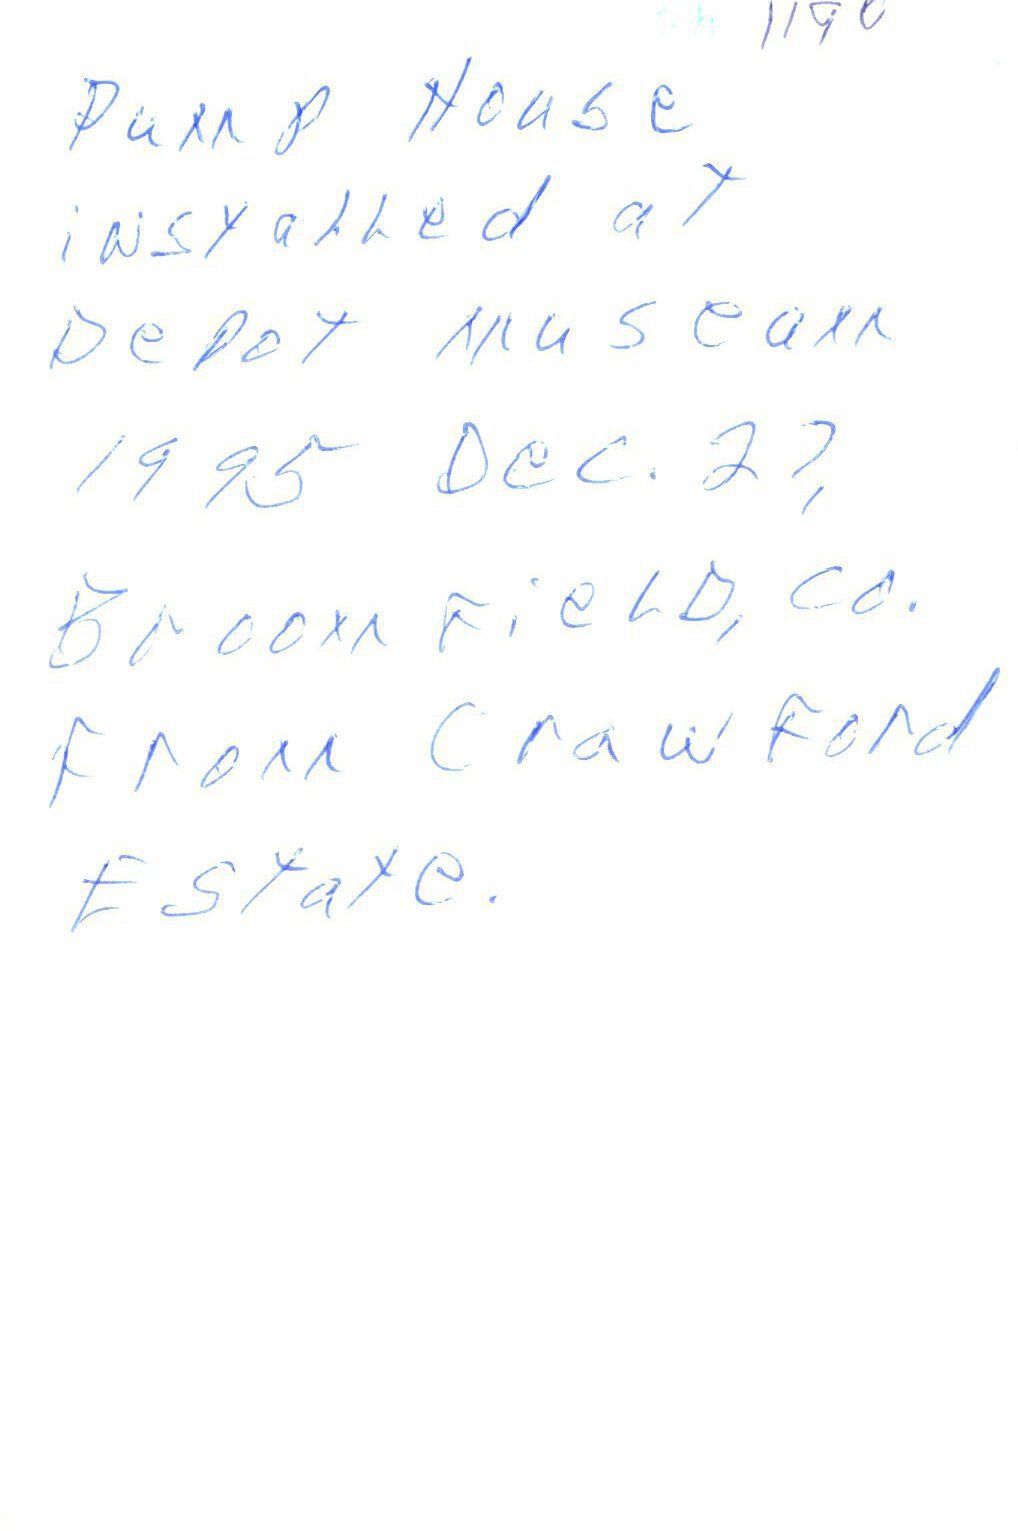 Pump House
installed at
Depot museum
1995 Dec. 27,
Broomfield, Co.
From Crawford
Estate.